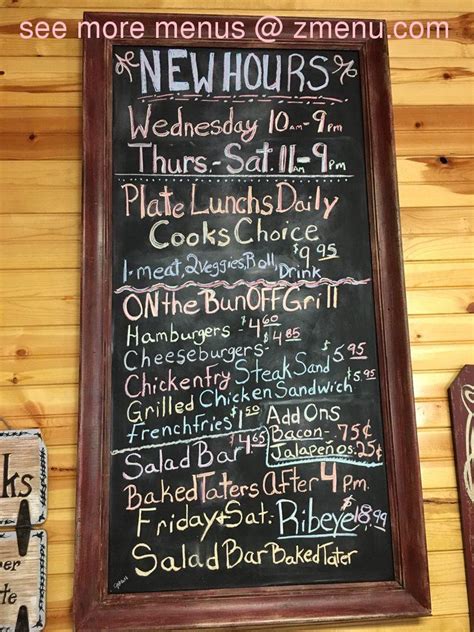 see more menus @ zmenu.com
NEW HOURS
Wednesday 10am-9pm
Thurs.-Sat. 11am-9pm
Plate Lunchs Daily
Cooks Choice
$9.95
1-meat, 2 Veggies, Roll, Drink
ON the Bun OFF Grill
Hamburgers $4.60
Cheeseburgers- $4.85
Chickenfry Steak Sand $5.95
Grilled Chicken Sandwich $5.95
french Fries $1.50
Add Ons
Bacon- 75¢
Jalapeños 25¢
Salad Bar $4.65
Baked Taters After 4 pm.
Friday & Sat. Ribeye 18.99
Salad Bar Baked Tater
ks
er
te